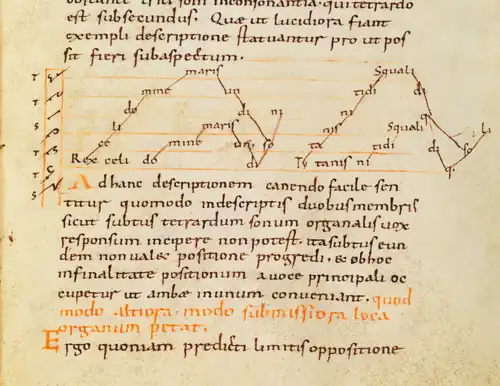 soni inconsonantia. qui tetrardo
est subsecundus. Quae ut lucidiora fiant
exempli descriptione statuantur pro ut pos
sit fieri subaspectum.
maris Squali
mine un tidi di
do di ni nis
li maris ta Squali
ce do mine un so tidi di so
Rex celi di Ty tanis ni
Ad hanc descriptionem canendo facile sen
titur quomodo indescriptis duobus membris
sicut subtus tetrardum sonum organalis vox
responsum incipere non potest. ita subtus eun
dem non valet positione progredi. & ob hoc
in finalitate positionum a voce principali oc
cupetur ut ambae in unum conveniant. quod
modo altiora. modo submissiora loca
organum petat.
Ergo quoniam predicti limitis oppositione